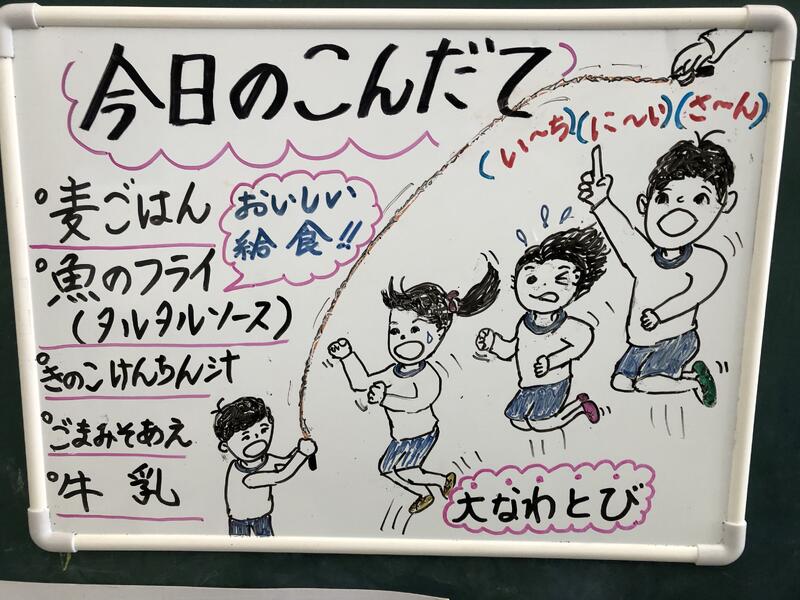 今日のこんだて
(い〜ち)(に〜い)(さ〜ん)
おいしい
給食!!
°麦ごはん
°魚のフライ
(タルタルソース)
°きのこけんちん汁
°ごまみそあえ
°牛乳
大なわとび